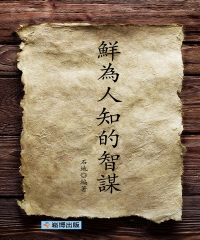 鮮為人知的智謀
石地◎編著
崧博出版